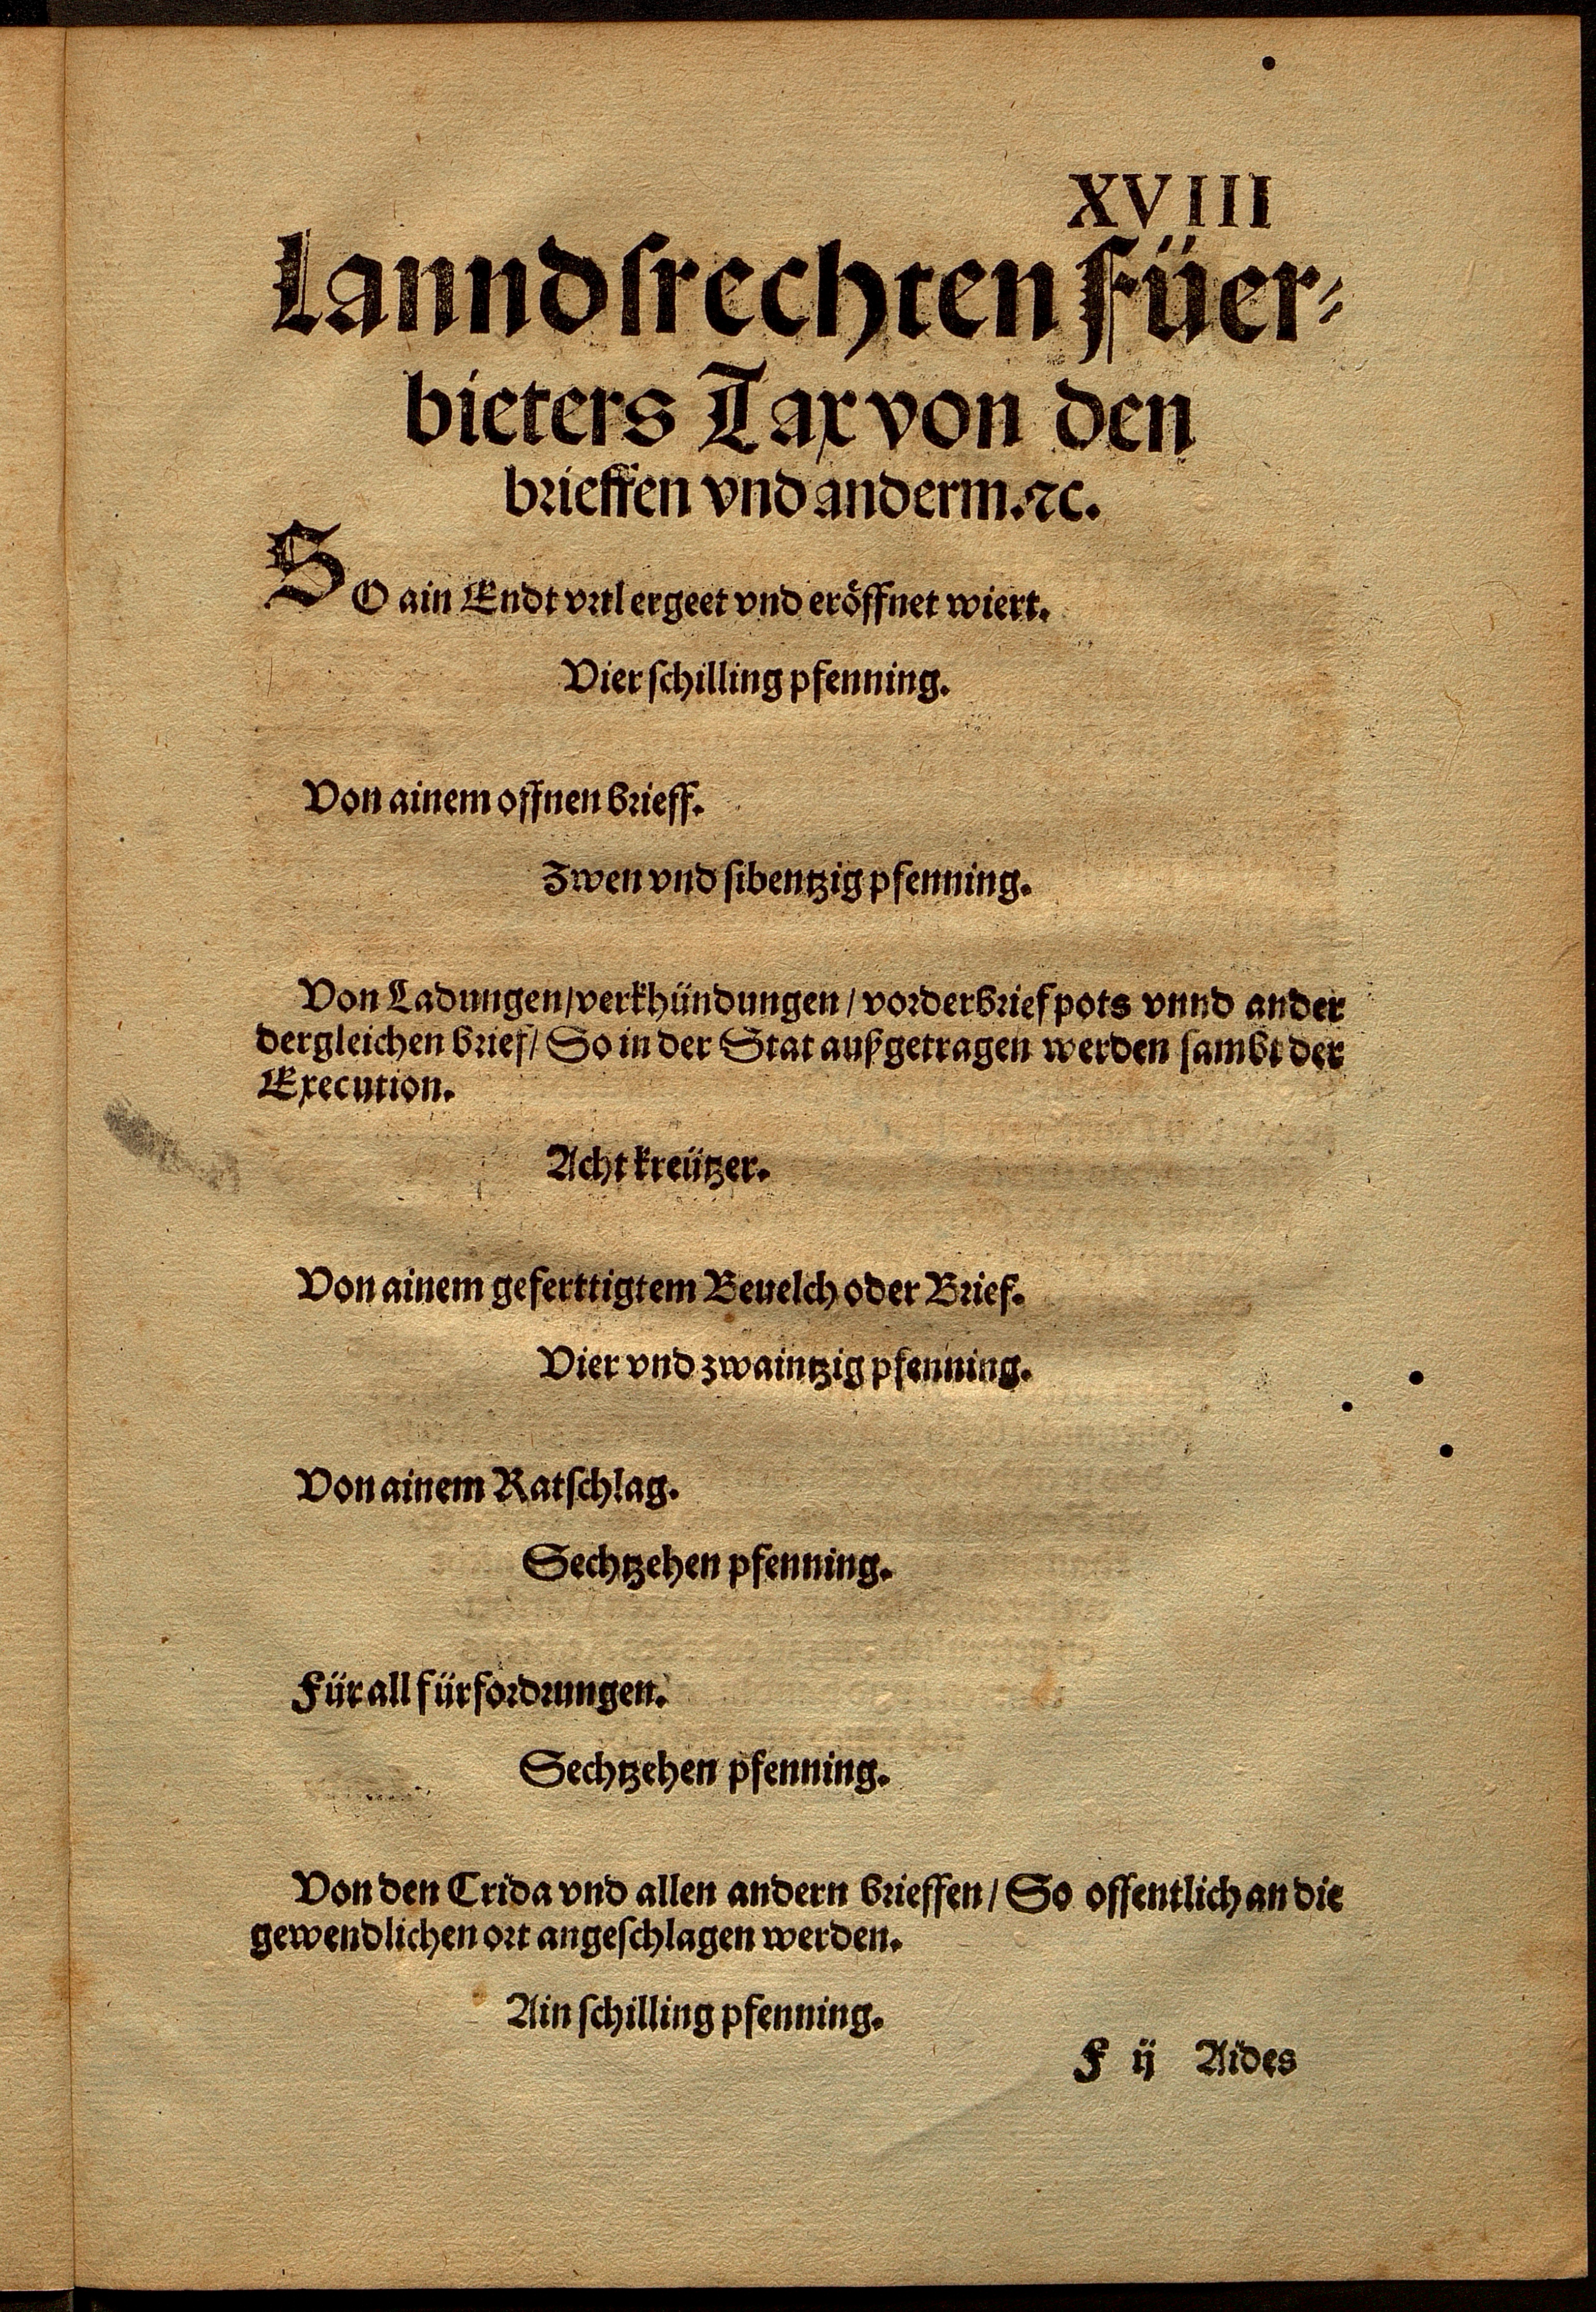 XVIII
Lanndsrechten Füer⸗
bieters Tax von den
brieffen vnd anderm. ꝛc.
SO ain Endt vrtl ergeet vnd eröffnet wiert.
Vier schilling pfenning.
Von ainem offnen brieff.
Zwen vnd sibentzig pfenning.
Von Ladungen/ verkhündungen/ vorderbrief pots vnnd ander
dergleichen brief/ So in der Stat außgetragen werden sambt der
Execution.
Acht kreützer.
Von ainem geferttigtem Beuelch oder Brief.
Vier vnd zwaintzig pfenning.
Von ainem Ratschlag.
Sechtzehen pfenning.
Für all fürfordrungen.
Sechtzehen pfenning.
Von den Crida vnd allen andern brieffen/ So offentlich an die
gewendlichen ort angeschlagen werden.
Ain schilling pfenning.
F ij Aides